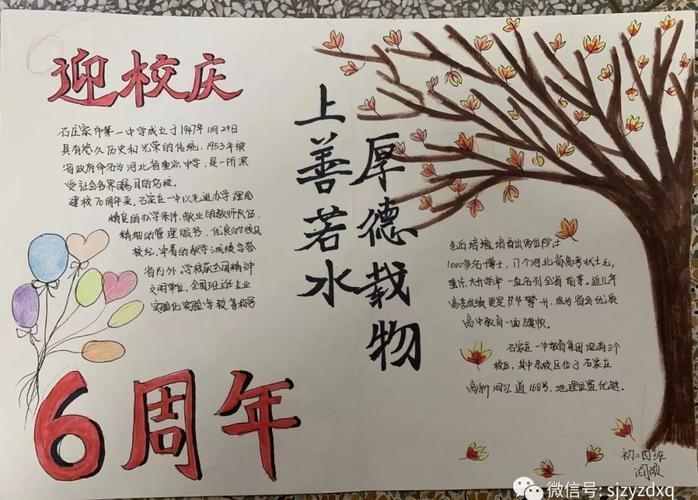 迎校庆
石庄家市第一中学成立于1947年11月29日
具有悠久历史和光荣的传统，1953年被
省政府命名为河北省重点中学，是一所深
受社会各界瞩目的名校。
建校70周年来，石家庄一中以先进办学理念
精良的办学条件，敬业的教师队伍，
精细的管理服务，优良的校风
校纪，卓著的教学成绩享誉
省内外，学校获全国精神
文明单位，全国
实验学校等称号
6周年
上善若水
厚德载物
先后培植，培育出两位院士
1000多名博士，11个河北省高考状元，
重点大学升学率一直名列全省前茅。近几年
高考成绩更是节节攀升，成为省会优质
高中教育一面旗帜。
石家庄一中教育集团现有三个
校区，其中东校区位于石家庄
高新湘江道168号，地理位置优越。
初二四班
微信号: sjzyzdxq